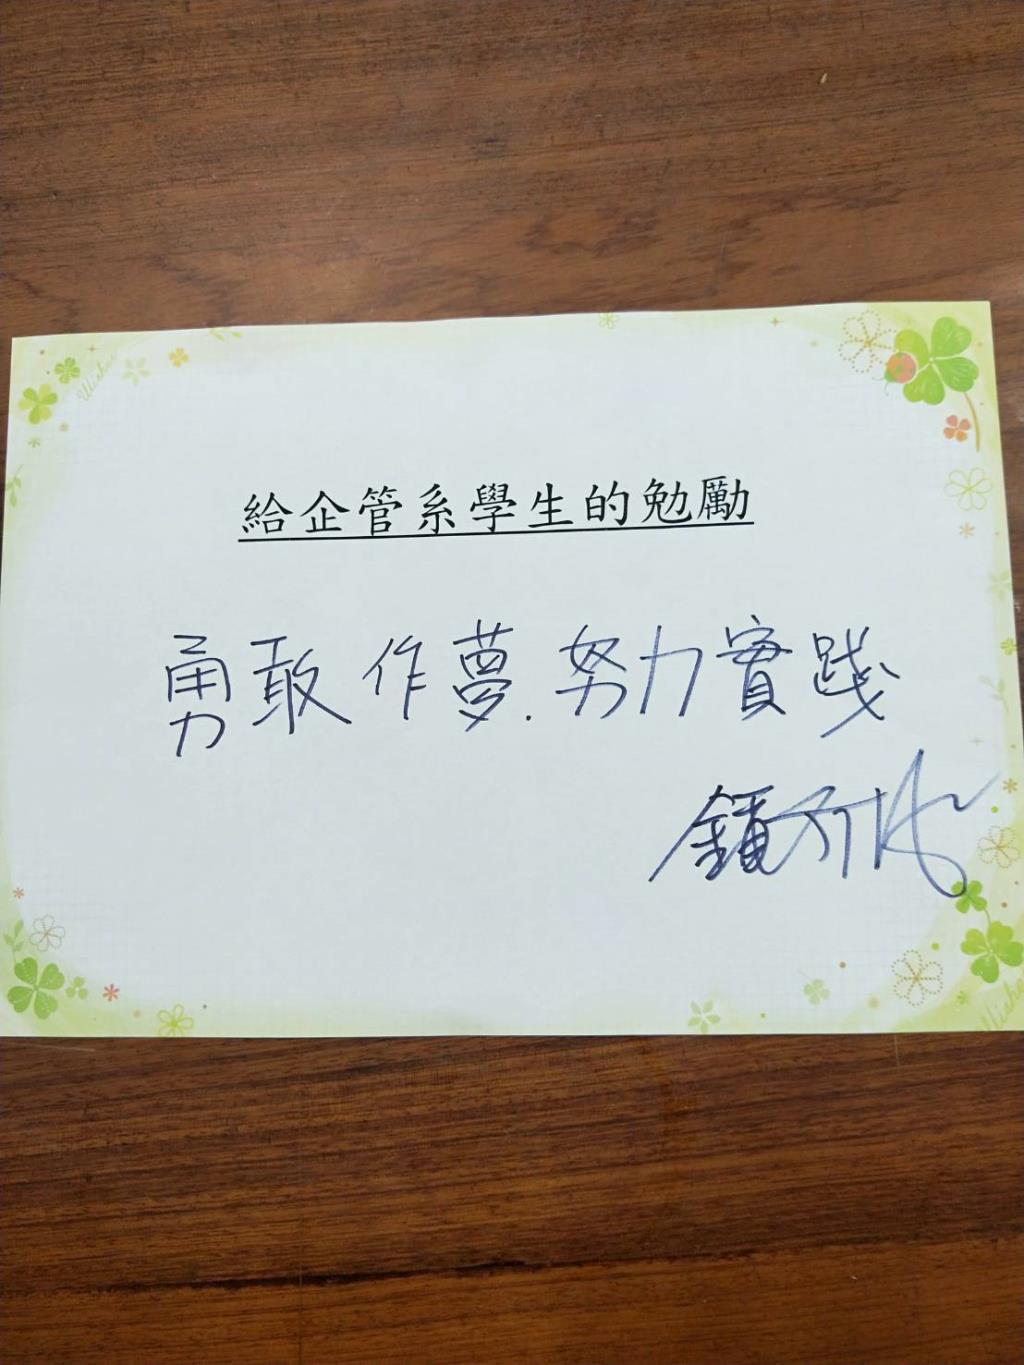 給企管系學生的勉勵
勇敢作夢.努力實踐
Wishes